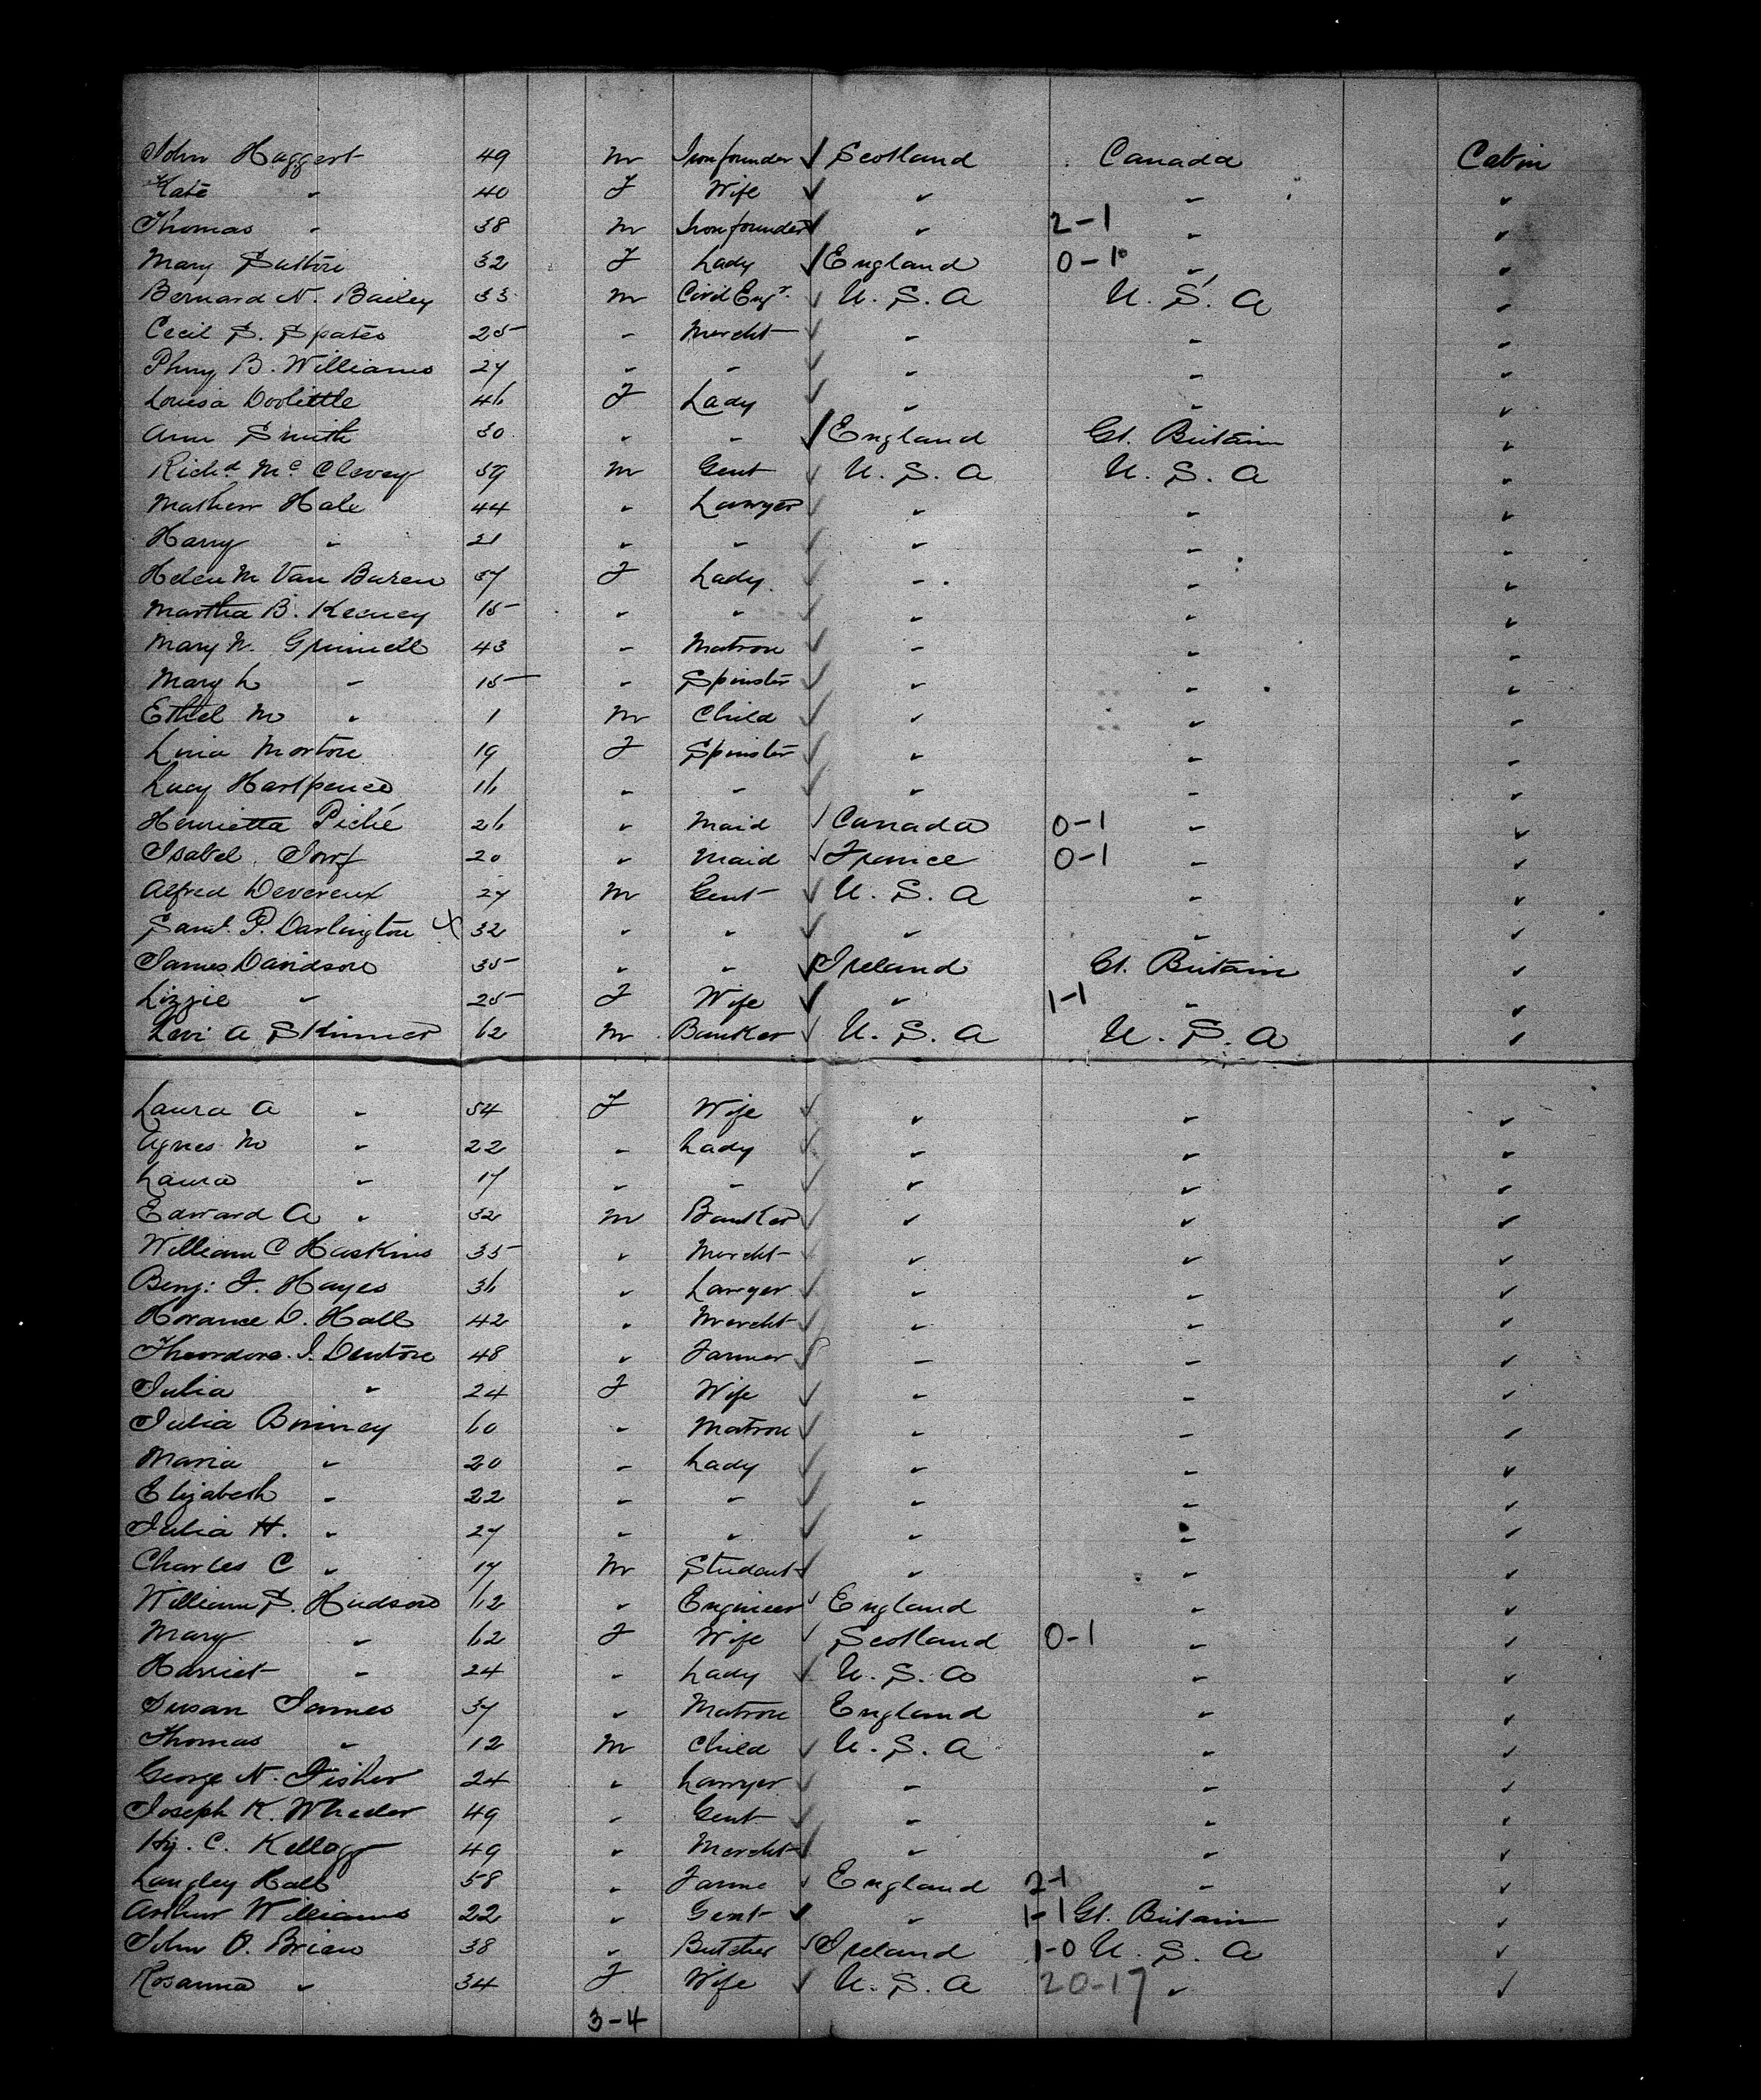 John Haggert 49 m Ironfounder ✓ Scotland Canada Cabin
Kate " 40 F Wife ✓ " " "
Thomas " 38 m Ironfounder ✓ " 2-1 " "
Mary Sutton 32 F Lady ✓ England 0-1 " "
Bernard N. Bailey 33 m Civil Engr. ✓ U. S. A U. S. A "
Cecil S. Spates 25 " Mercht ✓ " " "
Pliny B. Williams 27 " " ✓ " " "
Louisa Doolittle 46 F Lady ✓ " " "
Ann Smith 30 " " ✓ England Gt. Britain "
Richd McClevey 59 m Gent ✓ U. S. A U. S. A "
Mathew Hale 44 " Lawyer ✓ " " "
Harry " 21 " " ✓ " " "
Helen M Van Buren 37 F Lady ✓ " " "
Martha B. Keeney 15 " " ✓ " " "
Mary N. Grinnell 43 " Matron ✓ " " "
Mary L " 15 " Spinster ✓ " " "
Ethel M " 1 m Child ✓ " " "
Lina Morton 19 F Spinster ✓ " " "
Lucy Hartpence 16 " " ✓ " " "
Henrietta Piché 26 " Maid ✓ Canada 0-1 " "
Isabel 20 " Maid ✓ France 0-1 " "
Alfred Devereux 27 m Gent ✓ U. S. A " "
Saml. P. Darlington X 32 " " ✓ " " "
James Davidson 35 " " ✓ Ireland Gt. Britain "
Lizzie " 25 F Wife ✓ " 1-1 " "
Levi A Skinner 62 m Banker ✓ U. S. A U. S. A "
Laura A " 54 F Wife ✓ " " "
Agnes M " 22 " Lady ✓ " " "
Laura " 17 " " ✓ " " "
Edward A " 32 m Banker ✓ " " "
William C Haskins 35 " Mercht ✓ " " "
Benj: F. Hayes 36 " Lawyer ✓ " " "
Horance D. Hall 42 " Mercht ✓ " " "
Theordore. I. Denton 48 " Farmer ✓ " " "
Julia " 24 F Wife ✓ " " "
Julia Binney 60 " Matron ✓ " " "
Maria " 20 " Lady ✓ " " "
Elizabeth " 22 " " ✓ " " "
Julia H. " 27 " " ✓ " " "
Charles C " 17 m Student ✓ " " "
William S. Hudson 62 " Engineer ✓ England " "
Mary " 62 F Wife ✓ Scotland 0-1 " "
Harriet " 24 " Lady ✓ U. S. A " "
Susan James 37 " Matron England " "
Thomas " 12 m Child ✓ U. S. A " "
George N. Fisher 24 " Lawyer ✓ " " "
Joseph K. Wheeler 49 " Gent ✓ " " "
Hy. C. Kellogg 49 " Mercht ✓ " " "
Langley Hall 58 " Farme ✓ England 2-1 " "
Arthur Williams 22 " Gent ✓ " 1-1 Gt. Britain "
John O. Brien 38 " Butcher ✓ Ireland 1-0 U. S. A "
Rosanna " 34 F Wife ✓ U. S. A 20-17 " "
3-4